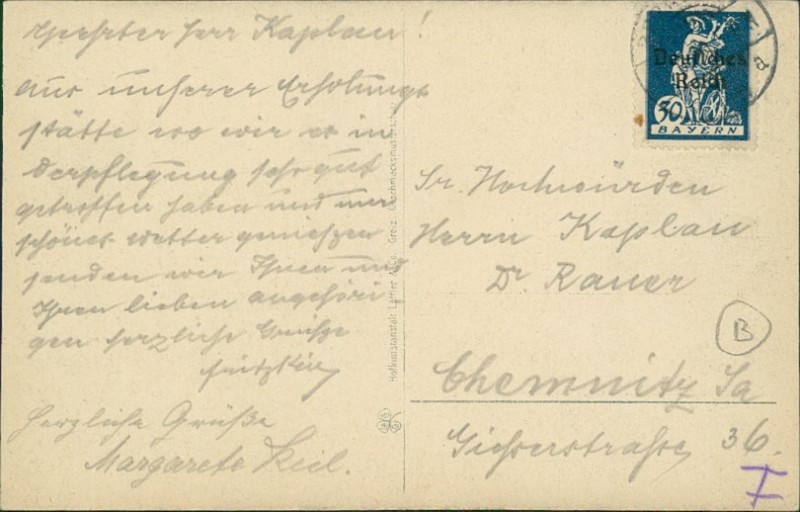 Geehrter Herr Kaplan!
aus unserer Erholungs
stätte wo wir es in
Verpflegung sehr gut
getroffen haben und nur
schönes Wetter genießen
senden wir Ihnen und
Ihren lieben angehöri
gen herzliche Grüße
Herzliche Grüße
Margarete Keil.
Deutsches
Reich
50
BAYERN
Sr. Hochwürden
Herrn Kaplan
Dr. Rauer
B
Chemnitz Sa
Giesserstrasse 36.
I